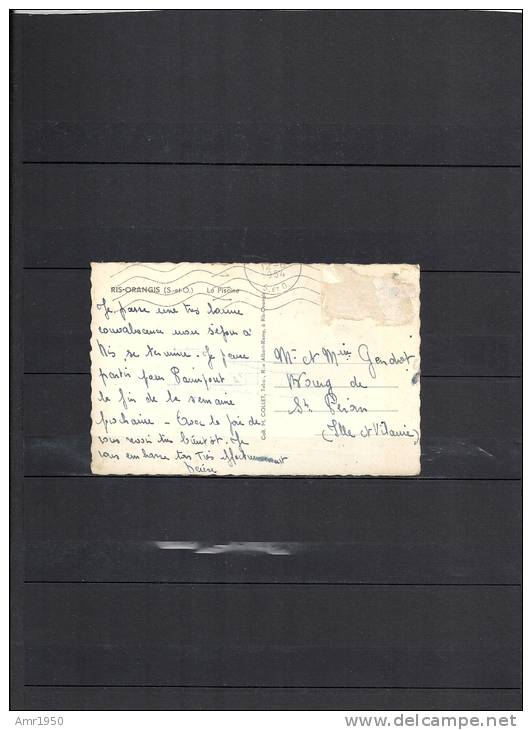 RIS-ORANGIS (S.-et-O.) La Piscine
12-
1954
S. ET O.
Je passe une très bonne
convalescence mon séjour à
Ris se termine. Je pense
partir pour Paimpont
la fin de la semaine
prochaine - Avec la joie de
vous revoir très bientôt. Je
vous embrasse tous Très affectueusement
Edit. M. COLLET, Tabac, Rue Albert-Rémy, à Ris-Orangis
Mr et Mme Gendrot
Bourg de
St Péran
(Ille et Vilaine)
Amr1950
delcampe.net